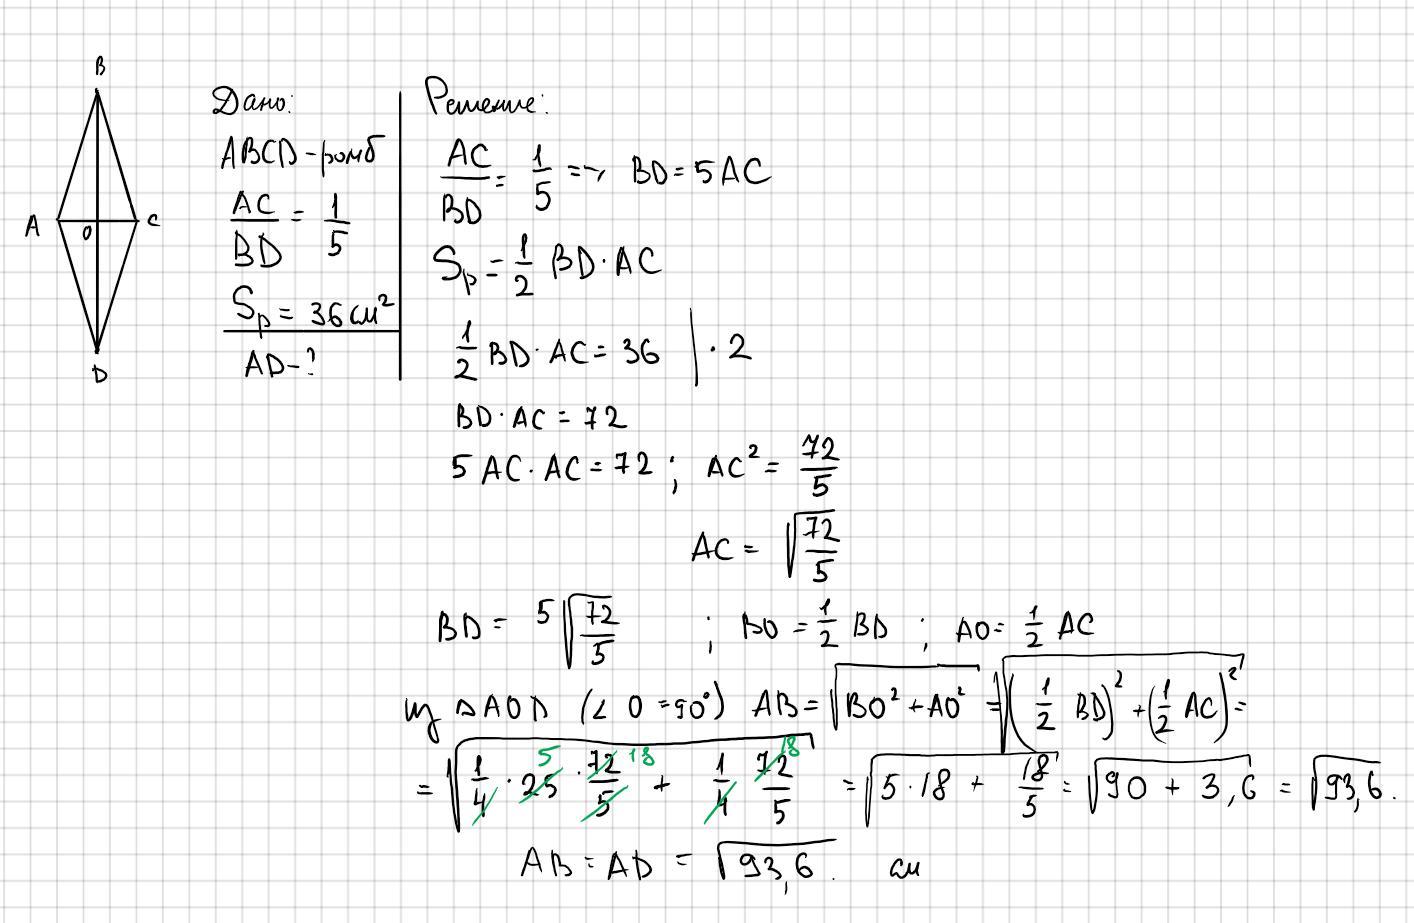 B
A
O
C
D
Дано:
ABCD - ромб
AC/BD = 1/5
Sр = 36 см²
AD - ?
Решение:
AC/BD = 1/5 => BD = 5 AC
Sр = 1/2 BD · AC
1/2 BD · AC = 36 | · 2
BD · AC = 72
5 AC · AC = 72 ; AC² = 72/5
AC = √(72/5)
BD = 5√(72/5) ; BO = 1/2 BD ; AO = 1/2 AC
из ΔAOD (∠ O = 90°) AB = √(BO² + AO²) = √((1/2 BD)² + (1/2 AC)²) =
= √(1/4 · 25 5 · 72/5 18 + 1/4 72/5 18) = √(5 · 18 + 18/5) = √(90 + 3,6) = √93,6.
AB = AD = √93,6. см